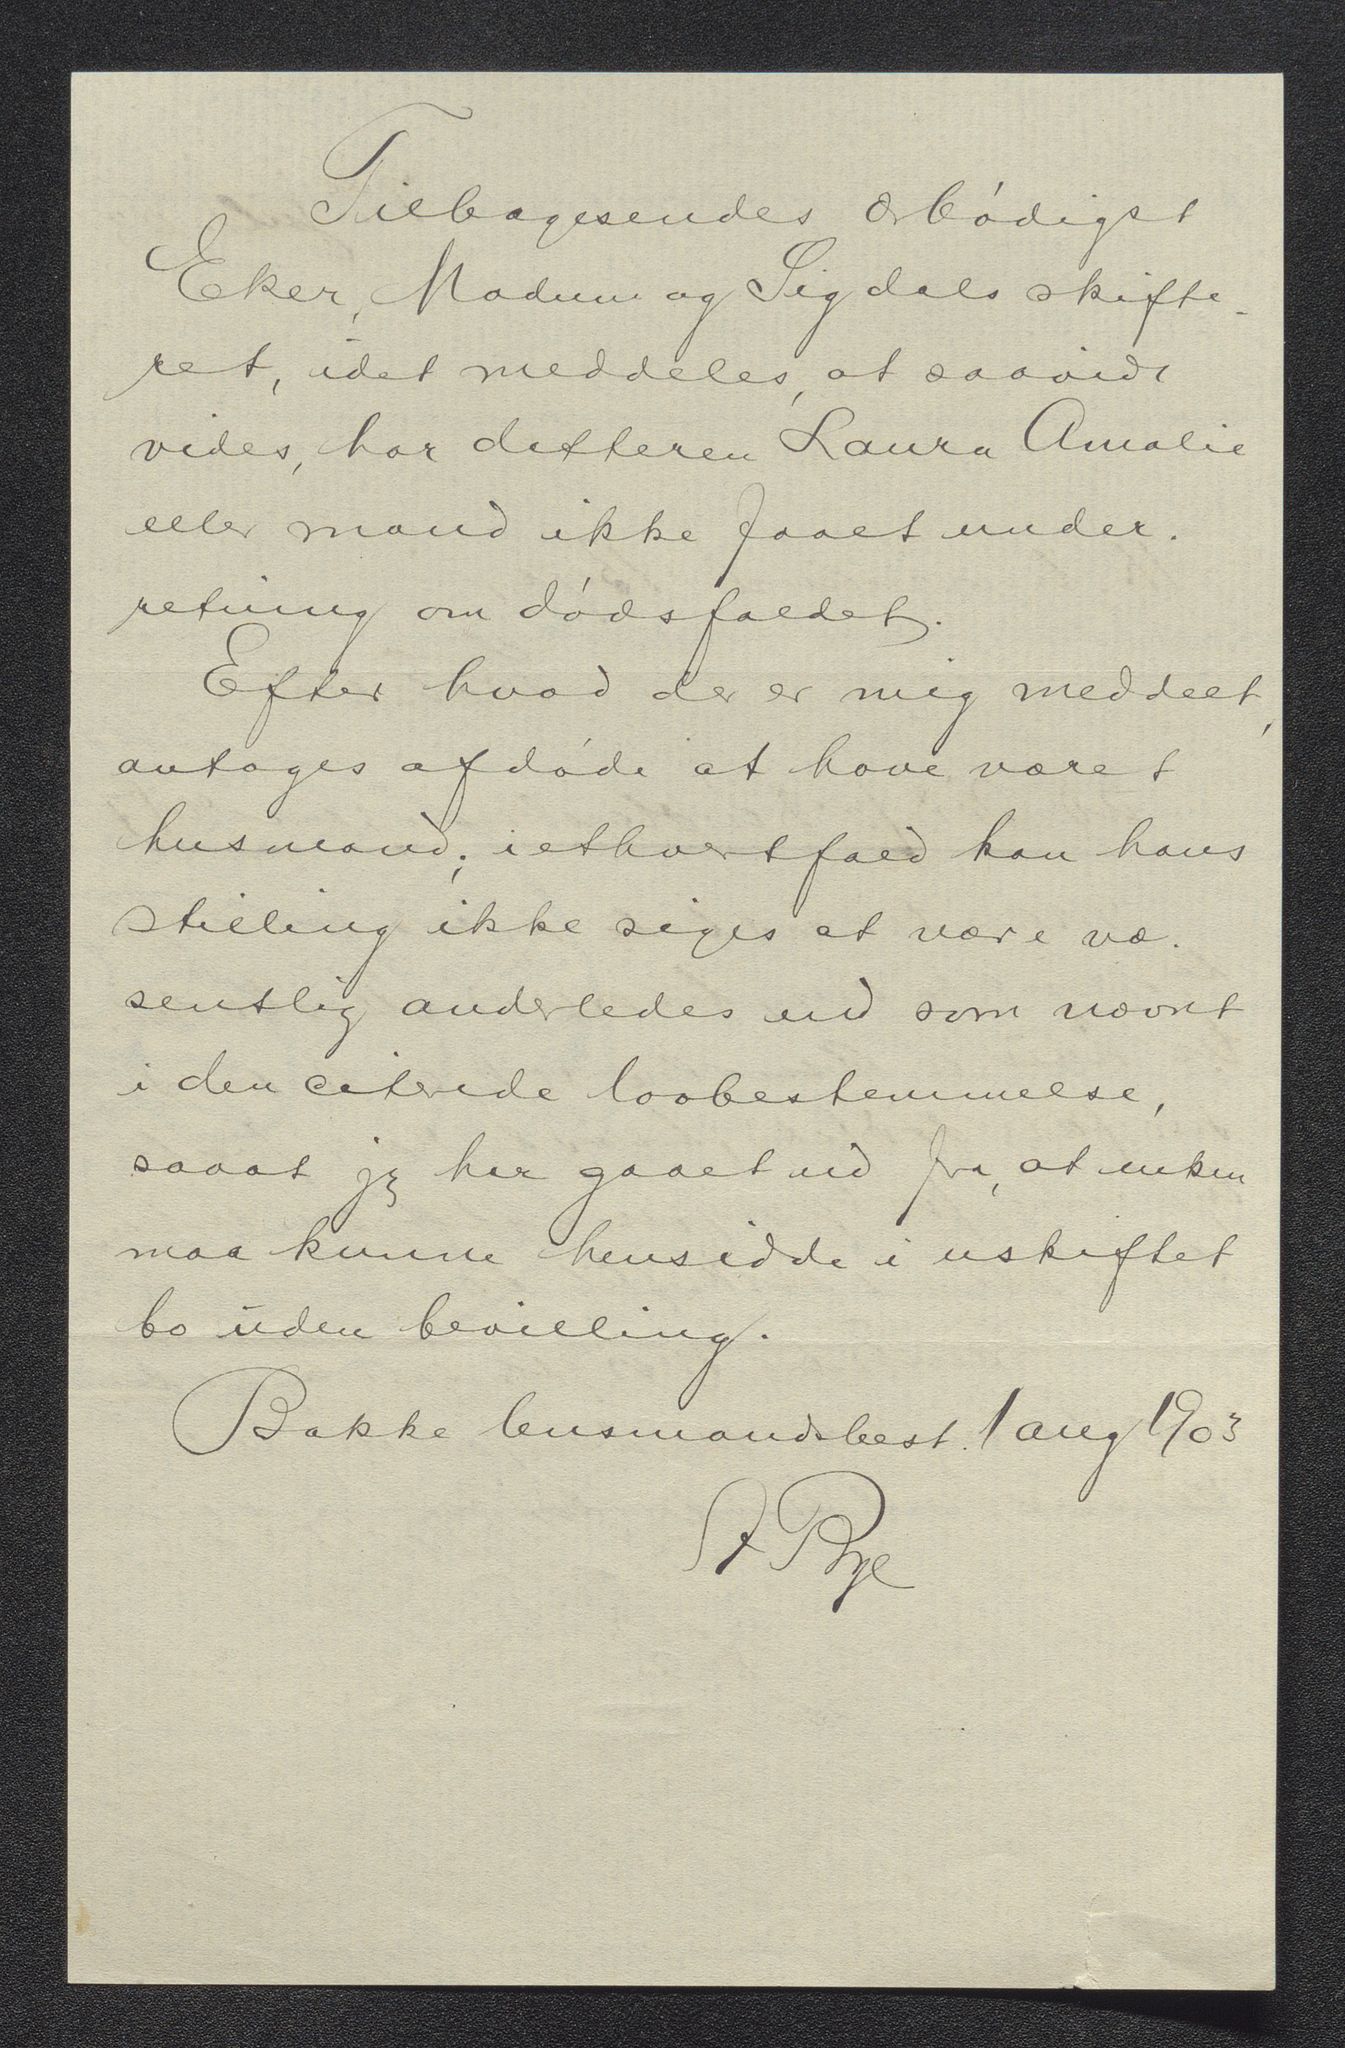 Tilbagesendes ærbødigst
Eker, Modum og Sigdals skifte-
ret, idet meddeles, at saavidt
vides, har datteren Laura Amalie
eller mand ikke faaet under-
retning om dødsfaldet.
Efter hvad der er mig meddelt,
antages afdøde at have været
husmand; i ethvert fald kan hans
stilling ikke siges at være væ-
sentlig anderledes end som nævnt
i den citerede lovbestemmelse,
saaat jeg har gaaet ud fra, at enken
maa kunne hensidde i uskiftet
bo uden bevilling.
Bakke lensmandsbest. 1 aug 1903
St Bye